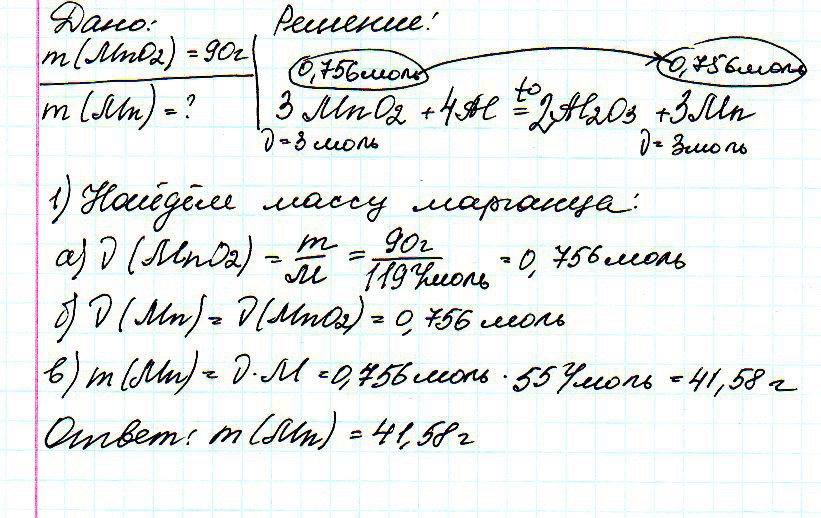 Дано:
m(MnO2) = 90г
m(Mn) = ?
Решение:
0,756моль
0,756моль
3MnO2 + 4Al t° = 2Al2O3 + 3Mn
ν=3моль
ν=3моль
1) Найдём массу марганца:
а) ν(MnO2) = m/M = 90г/119г/моль = 0,756моль
б) ν(Mn) = ν(MnO2) = 0,756 моль
в) m(Mn) = ν·M = 0,756моль · 55г/моль = 41,58 г
Ответ: m(Mn) = 41,58г